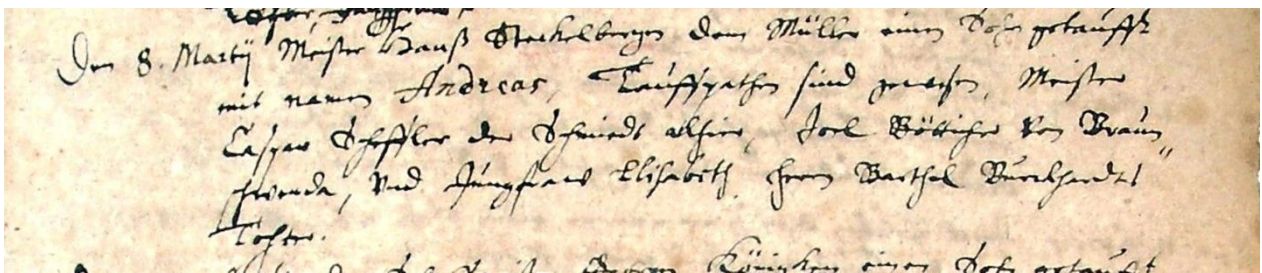 Tochter,
Den 8. Martij Meister Hanß Steckelbergen dem Müller einen Sohn getaufft
mit namen Andreas, Tauffpathen sind gewesen, Meister
Caspar Scheffler der Schmiedt alhier, Joel Böttiger von Braun„
schwenda, vnd Jungfraw Elisabeth, Herrn Barthol Burckhardts
Tochter.
einen Sohn getaufft